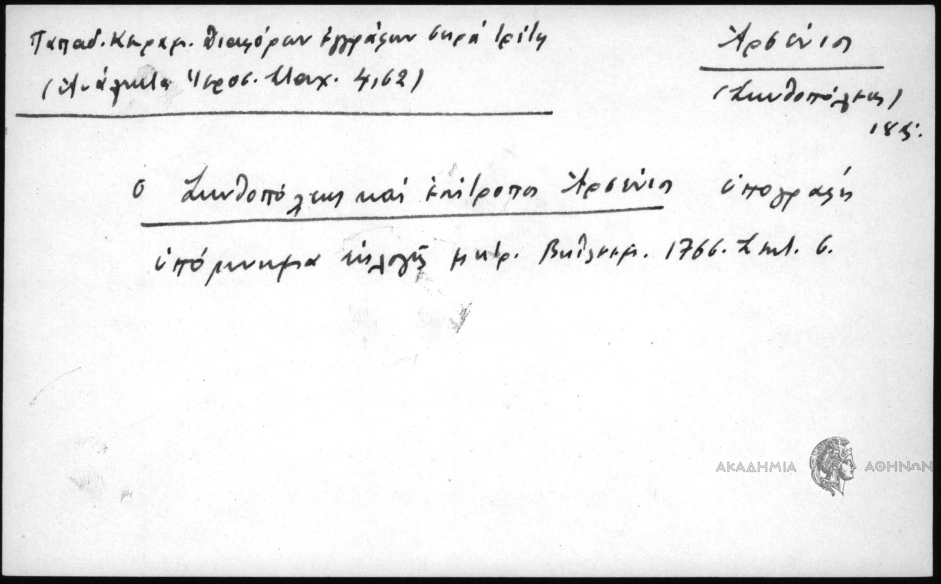 Παπαδ. Κεραμ. Διαφόρων ἐγγράφων σειρά τρίτη
(Ἀνάλεκτα Ἱεροσ. Σταχ. 4,62)
Ἀρσένιος
(Σκυθοπόλεως)
18ς.
ὁ Σκυθοπόλεως καί ἐπίτροπος Ἀρσένιος ὑπογράφει
ὑπόμνημα ἐκλογῆς μητρ. Βηθλεεμ. 1766. Σεπτ. 6.
ΑΚΑΔΗΜΙΑ ΑΘΗΝΩΝ